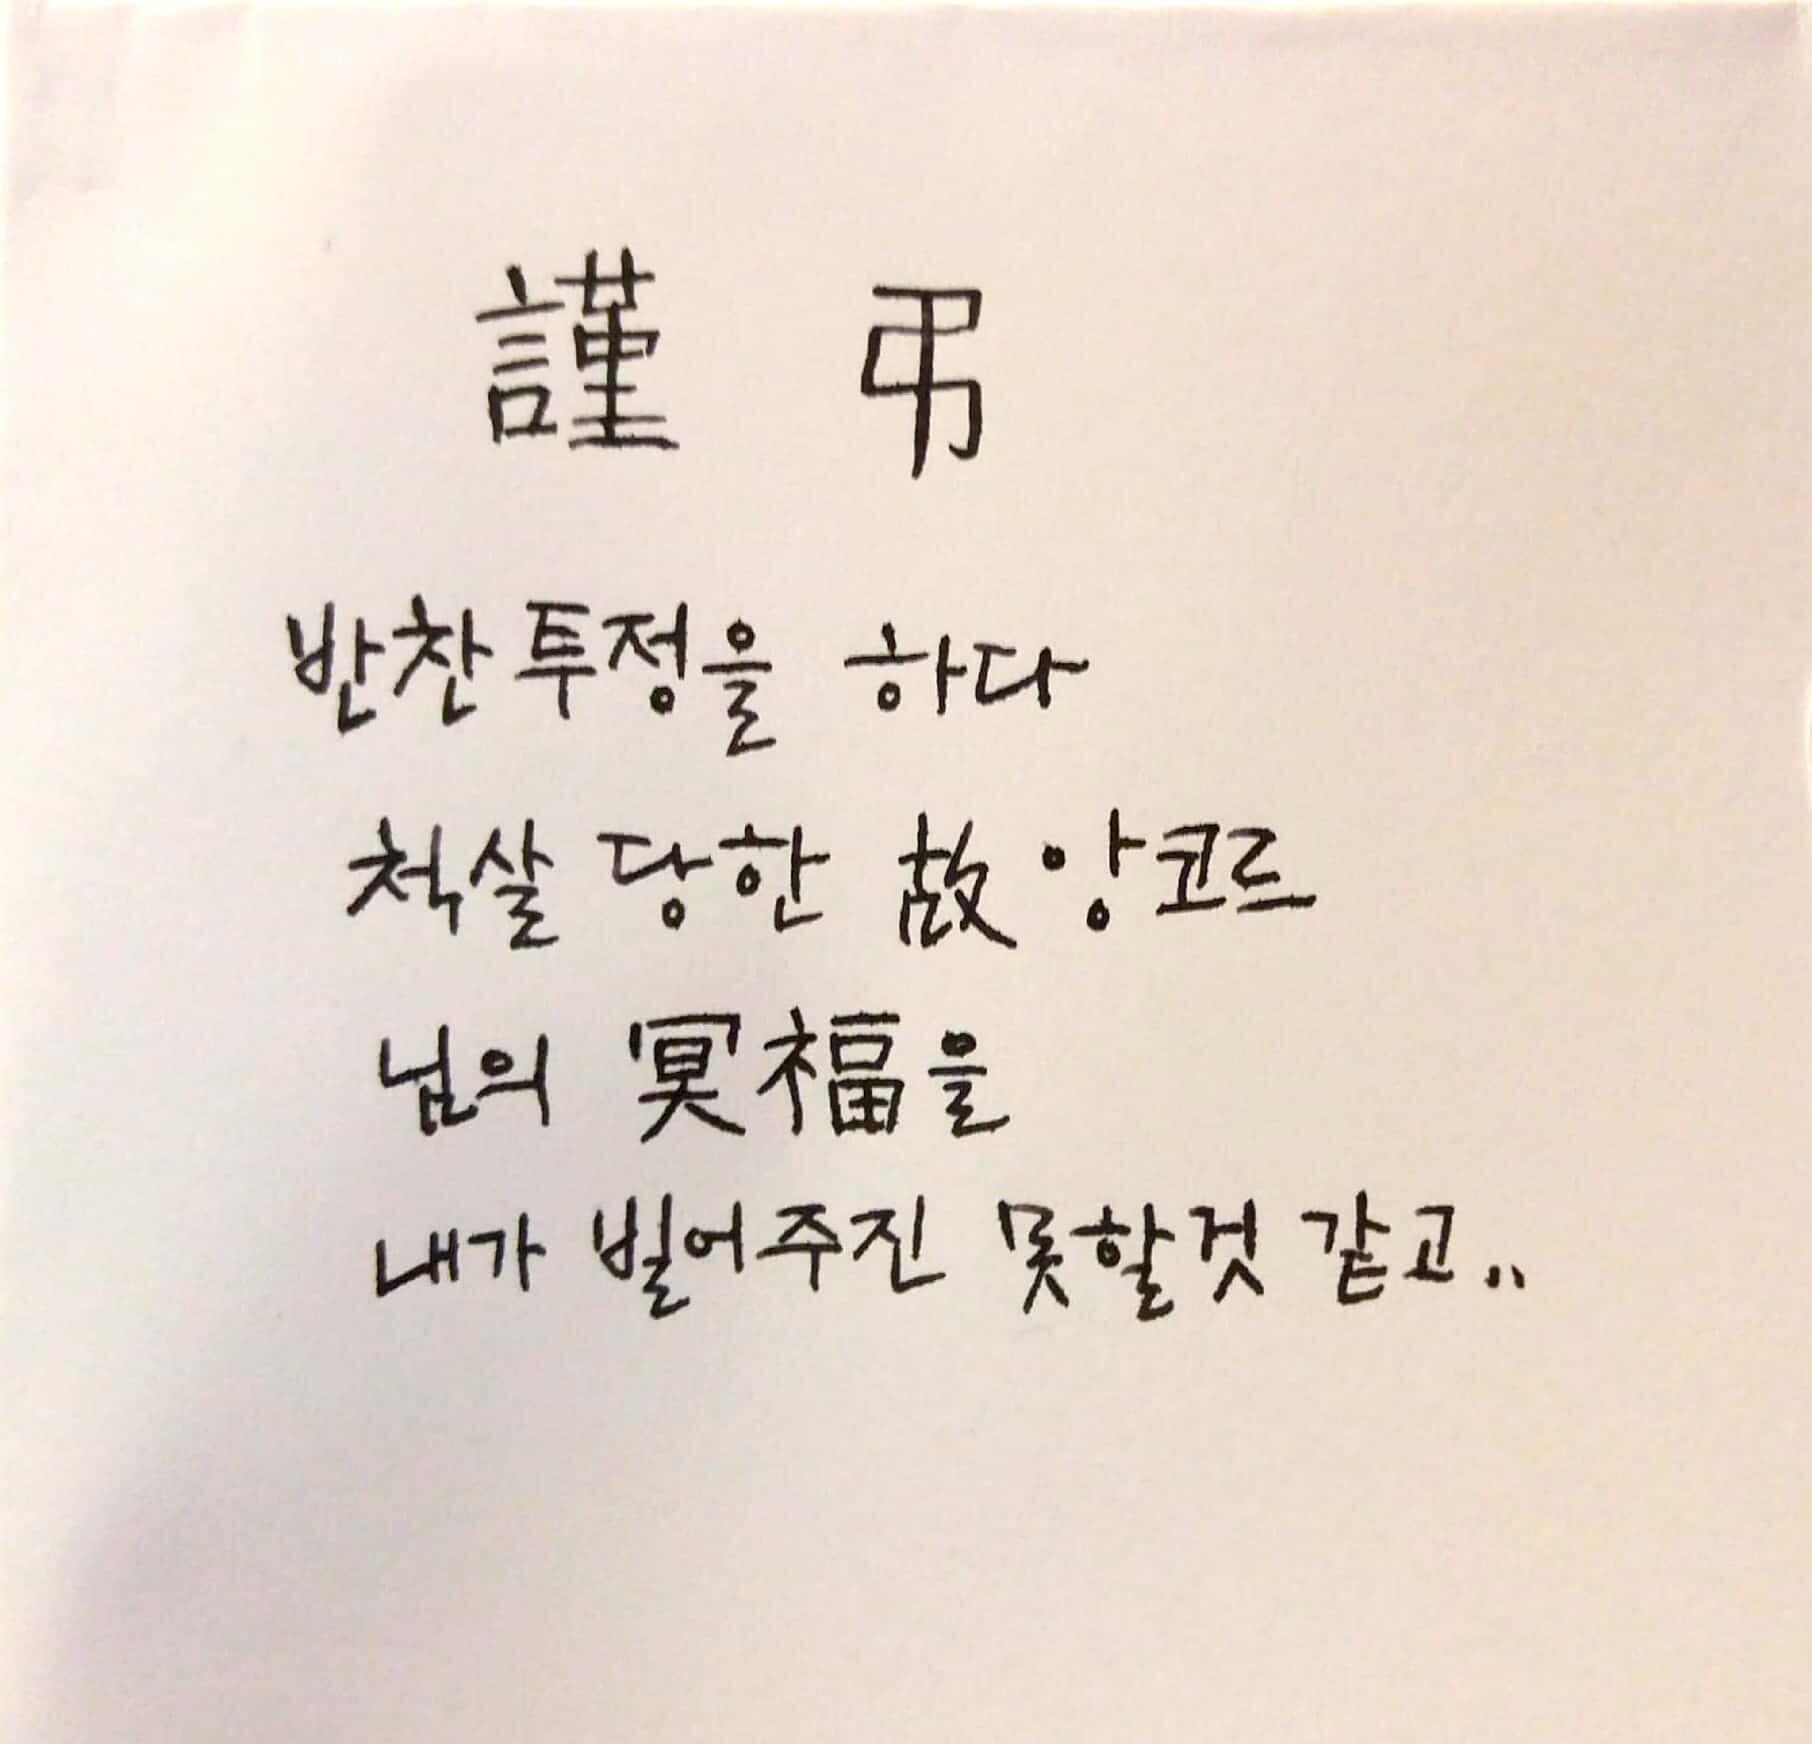 謹 弔
반찬투정을 하다
척살 당한 故 앙코르
님의 冥福을
내가 빌어주진 못할것 같고..